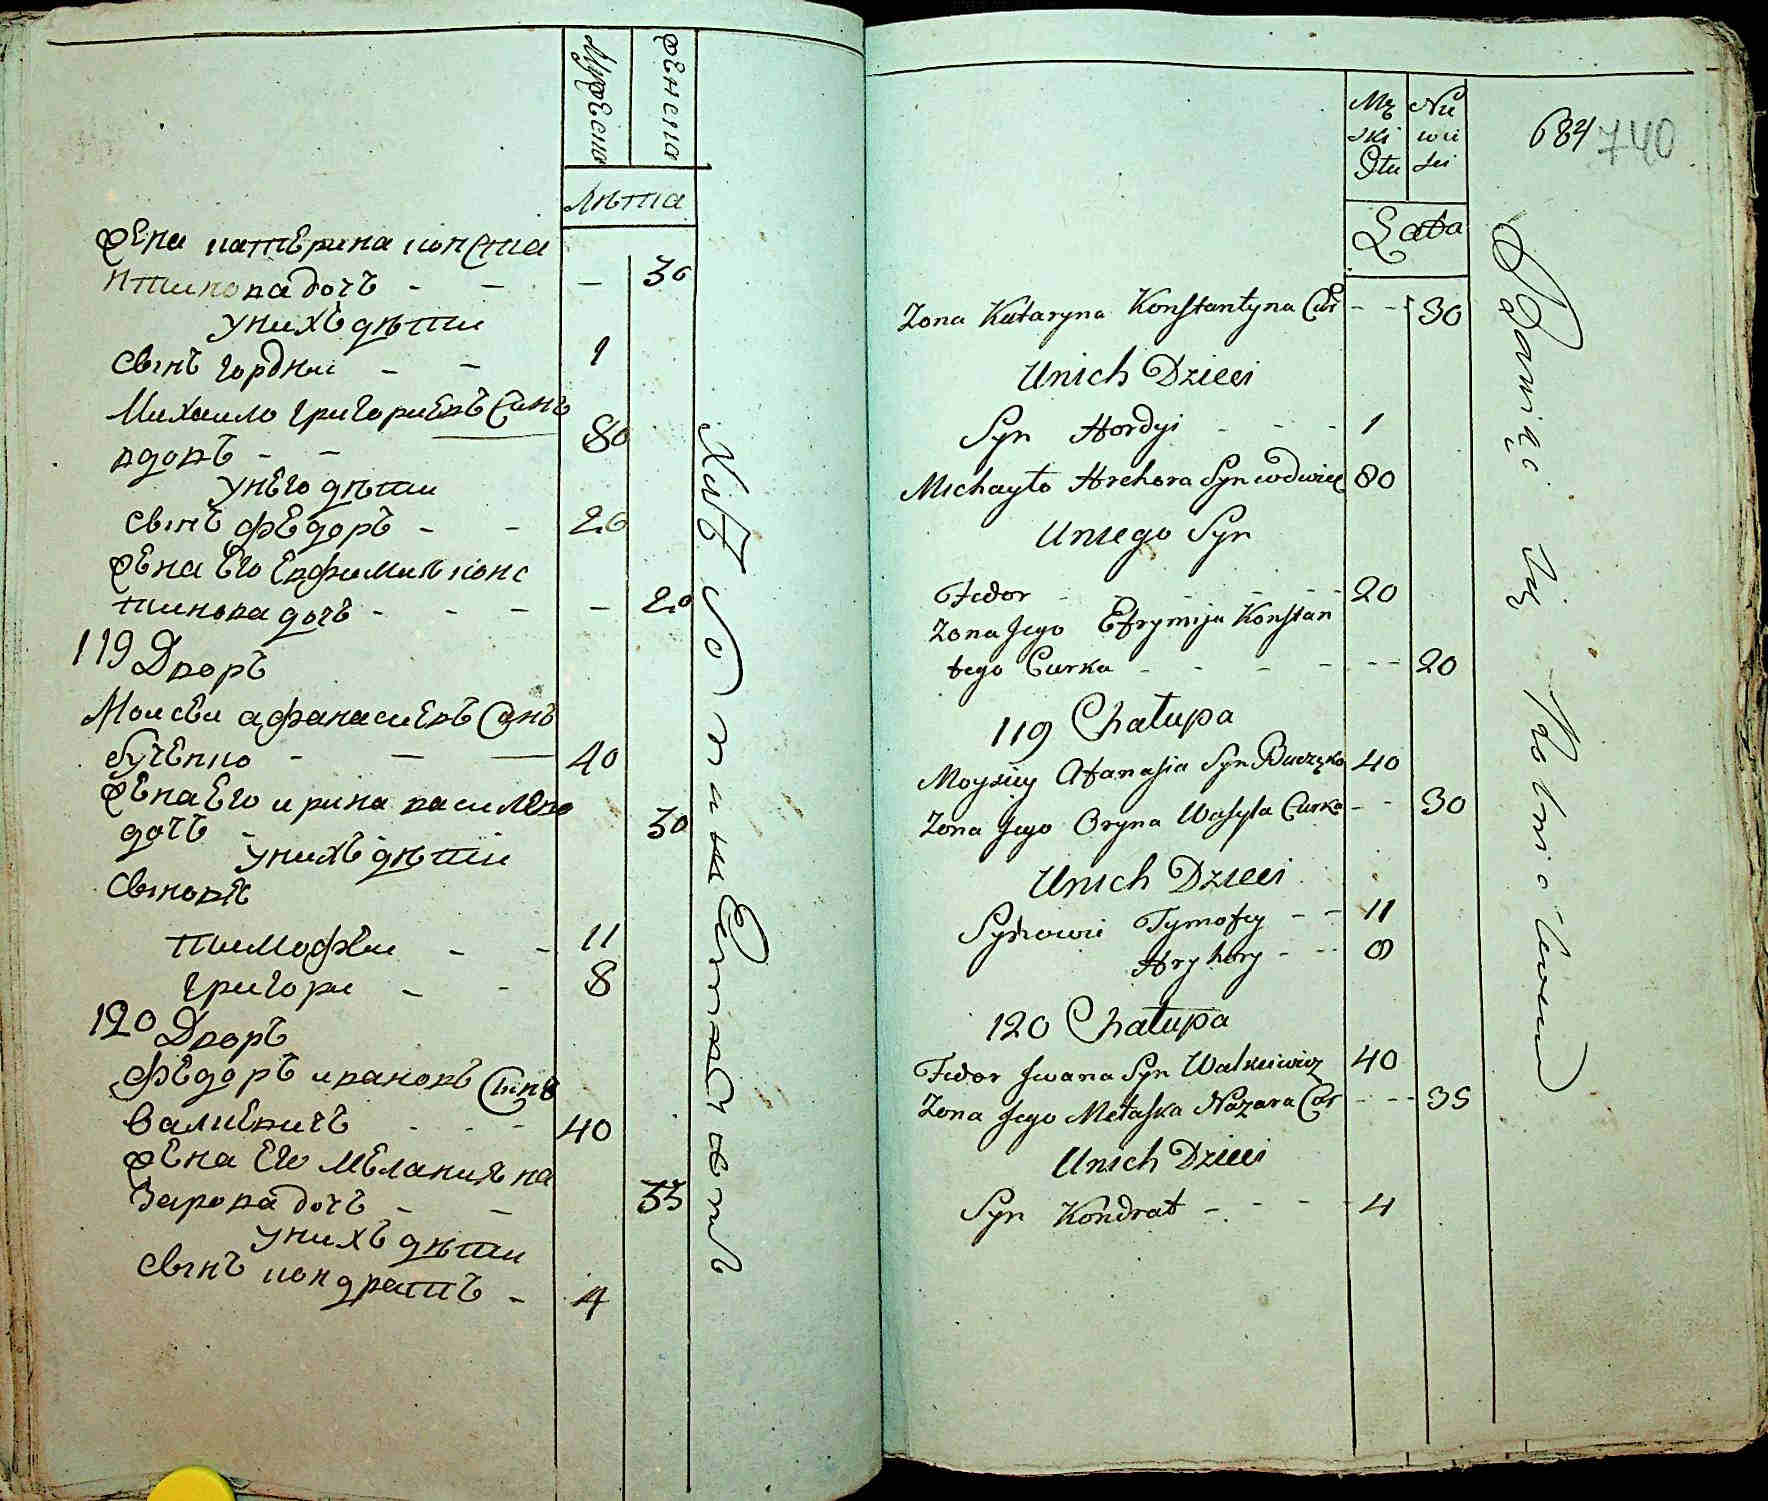 Мужеска
Женска
Лѣта
Жена катерина конста
нтинова дочь - - - 30
у нихъ дѣти
сынъ гордѣи - - 1
Михаило григориевъ сынъ
вдовъ - - 80
у него дѣти
сынъ федоръ - - 20
жена его евфимия конс
тинова дочь - - - - 20
119 Дворъ
Моисеи афанасиевъ сынъ
бученко - - - 40
жена его ирина василева
дочь - 30
у нихъ дѣти
сыновя
тимофѣи - - 11
григори - - 8
120 Дворъ
федоръ ивановъ сынъ
валкевичъ - - - 40
жена его мелания на
зарова дочь - - 33
у нихъ дѣти
сынъ кондратъ - 4
Хлѣбопашествомъ
684 740
Mę Nie
ski wie
Płci sci
Lata
Zona Kataryna Konstantyna Cur - - 30
Unich Dzieci
Syn Hordyi - - - 1
Michayło Hrehora Syn wdwiec 80
Uniego Syn
Fedor - - - - - 20
Zona Jego Efrymija Konstan
tego Curka - - - - - - 20
119 Chałupa
Moysiey Afanasia Syn Buczęko 40
Zona Jego Oryna Wasyla Curka - - 30
Unich Dzieci
Synowie Tymofey - - 11
Hryhory - - 8
120 Chałupa
Fedor Jwana Syn Walkiewicz 40
Zona Jego Melaska Nazara Cór - - - 35
Unich Dzieci
Syn Kondrat - - - - 4
Bawiąc się Rolnictwem